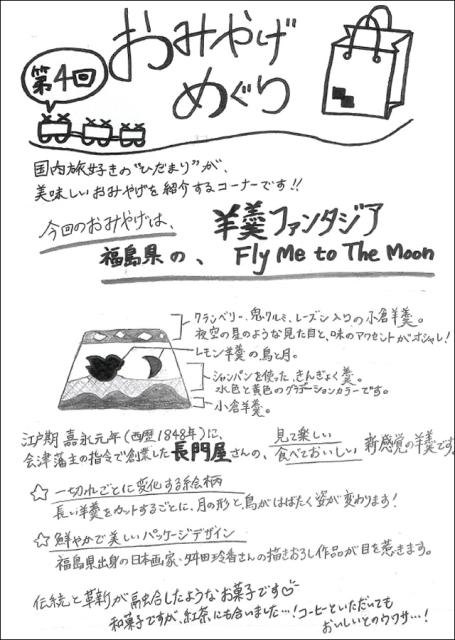 第4回
おみやげ
めぐり
国内旅好きの"ひだまり"が、
美味しいおみやげを紹介するコーナーです!!
今回のおみやげは、
羊羹ファンタジア
福島県の、 Fly Me to The Moon
クランベリー、鬼クルミ、レーズン入りの小倉羊羹。
夜空の星のような見た目と、味のアクセントがオシャレ!
レモン羊羹の鳥と月。
シャンパンを使ったきんぎょく羹。
水色と黄色のグラデーションカラーです。
小倉羊羹。
江戸期 嘉永元年(西暦1848年)に、
会津藩主の指令で創業した長門屋さんの、見て楽しい 食べておいしい 新感覚の羊羹です
☆一切れごとに変化する絵柄
長い羊羹をカットするごとに、月の形と鳥がはばたく姿が変わります!
☆鮮やかで美しいパッケージデザイン
福島県出身の日本画家・舛田玲香さんの描きおろし作品が目を惹きます。
伝統と革新が融合したようなお菓子です♡
和菓子ですが、紅茶にも合いました…!コーヒーといただいても
おいしいとのウワサ…!